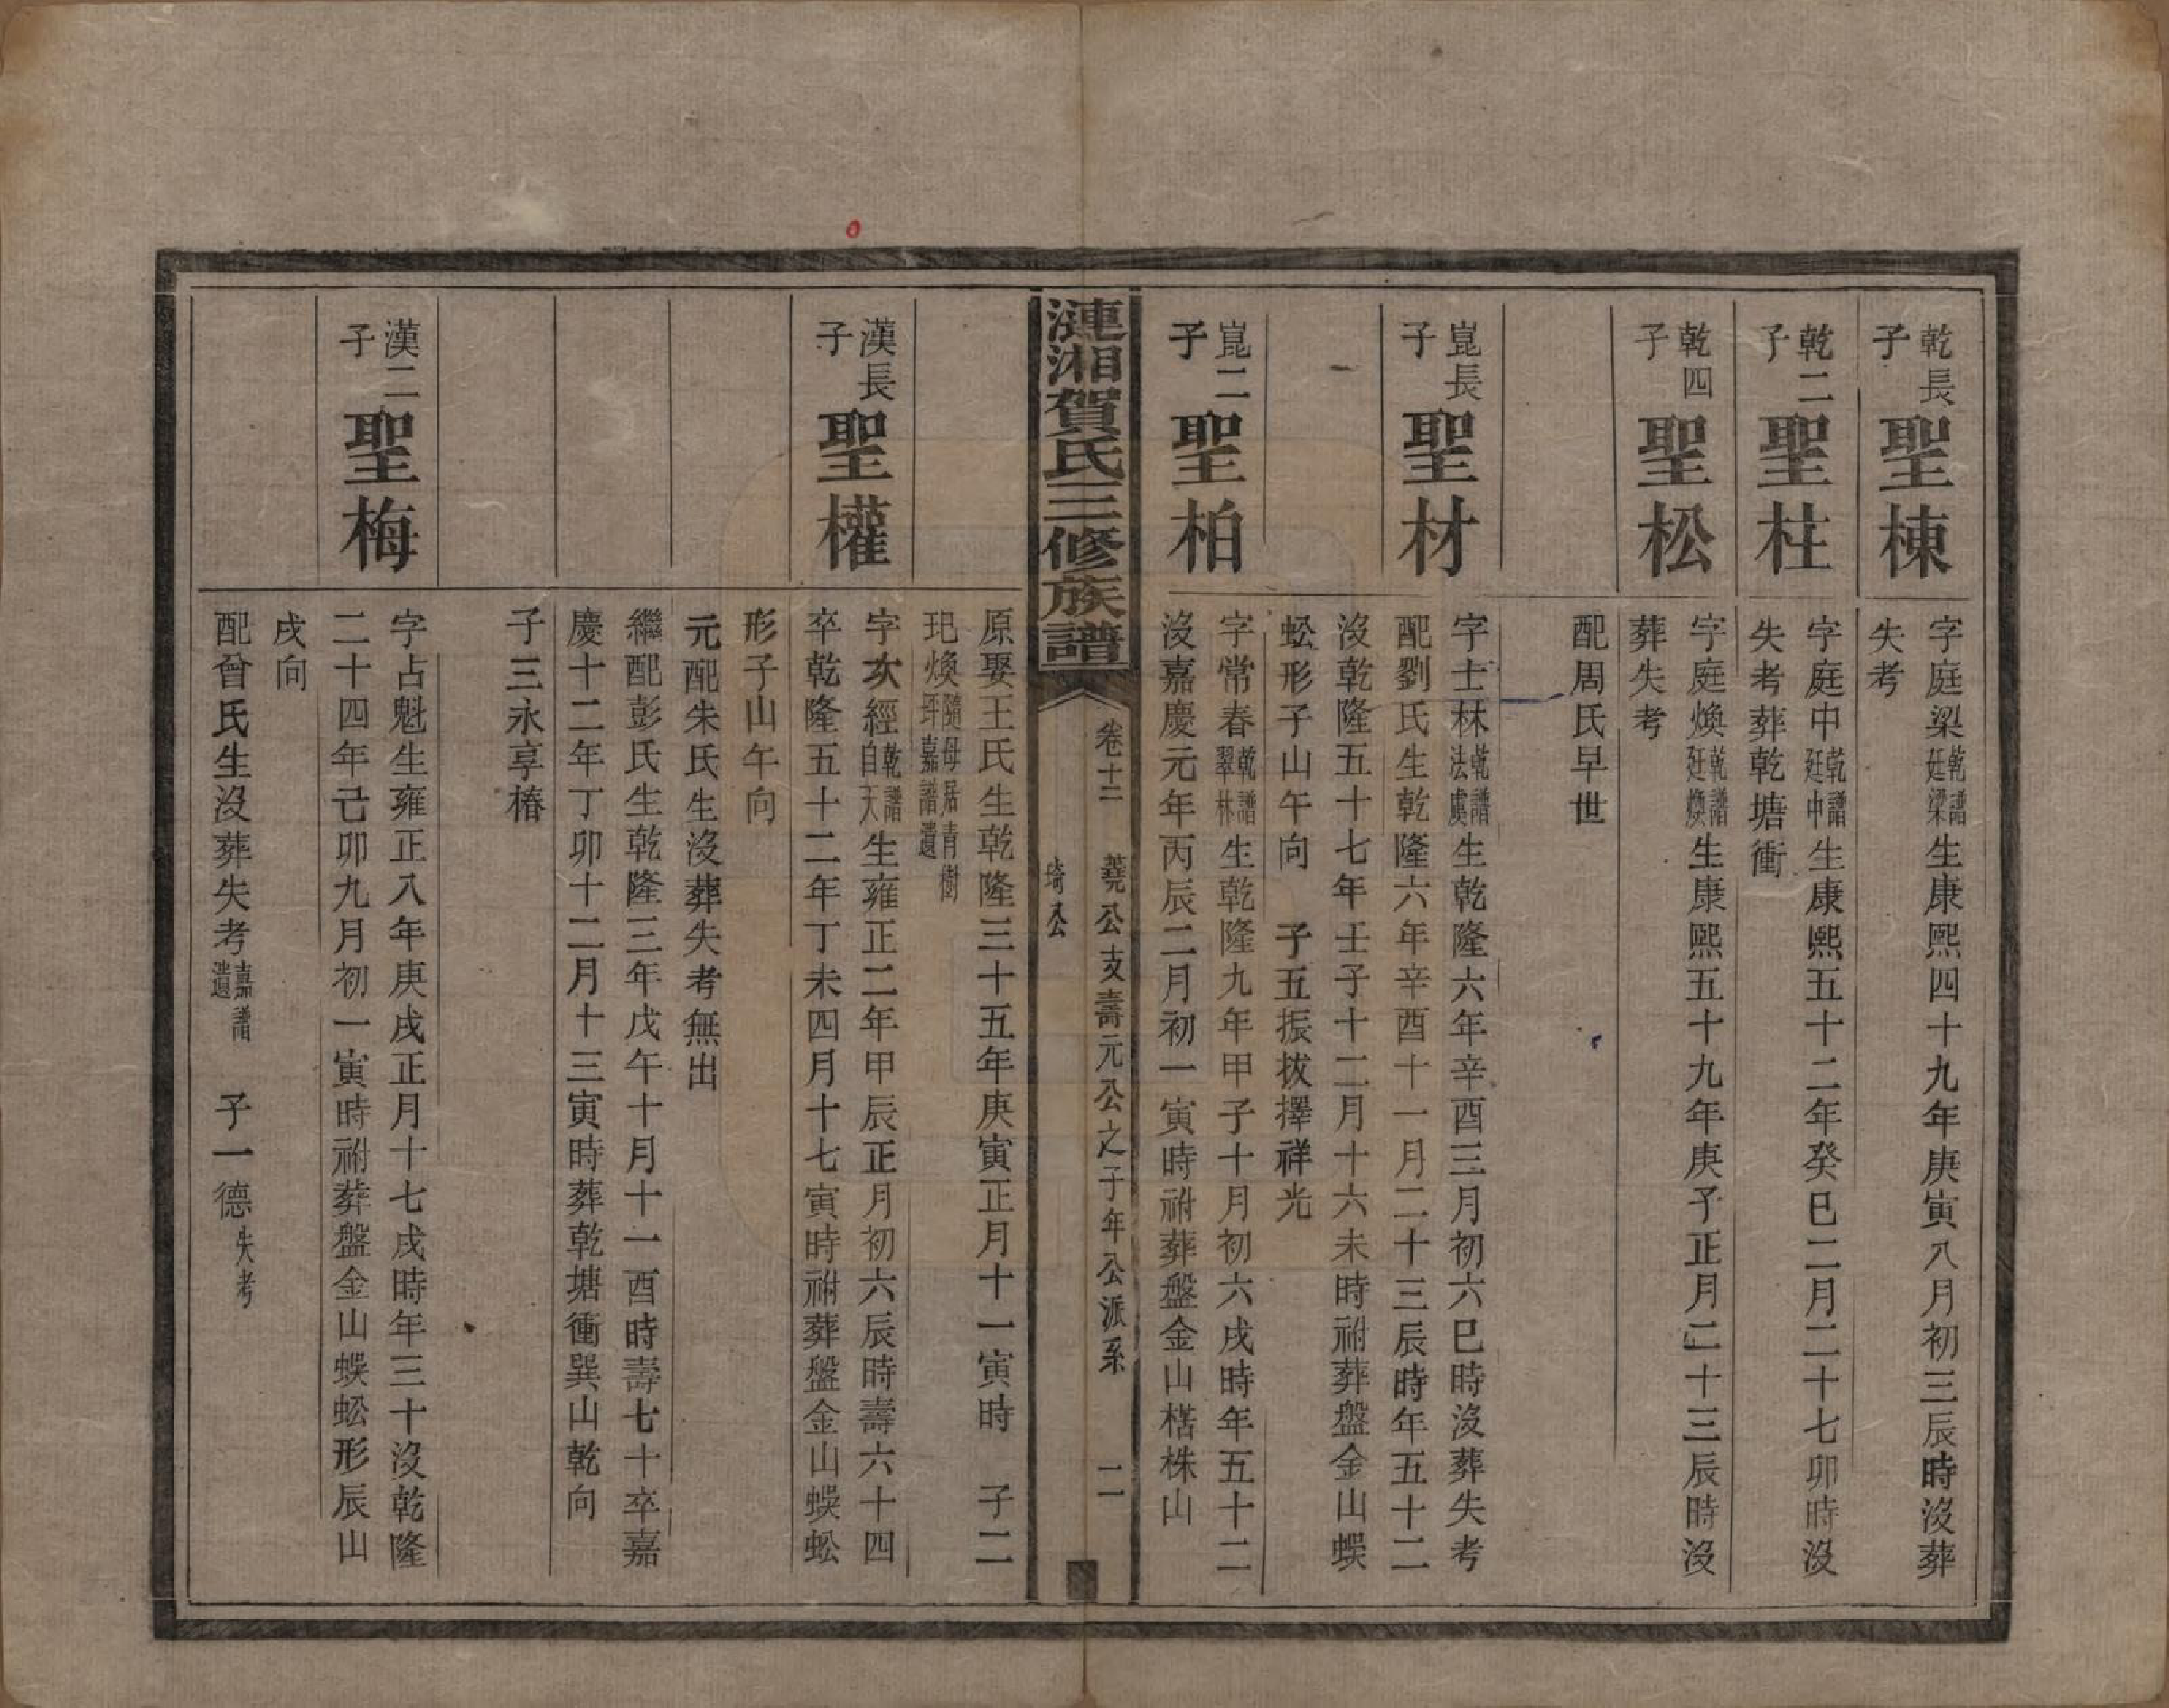 乾長子
聖棟
字庭梁乾譜廷梁生康熙四十九年庚寅八月初三辰時沒葬
失考
乾二子
聖柱
字庭中乾譜廷中生康熙五十二年癸巳二月二十七卯時沒
失考葬乾塘衝
乾四子
聖松
字庭煥乾譜廷煥生康熙五十九年庚子正月二十三辰時沒
葬失考
配周氏早世
崑長子
聖材
字士林乾譜法虞生乾隆六年辛酉三月初六巳時沒葬失考
配劉氏生乾隆六年辛酉十一月二十三辰時年五十二
沒乾隆五十七年壬子十二月十六未時祔葬盤金山蜈
蚣形子山午向 子五振拔擇祥光
崑二子
聖柏
字常春乾譜翠林生乾隆九年甲子十月初六戌時年五十二
沒嘉慶元年丙辰二月初一寅時祔葬盤金山楛株山
漣湘賀氏三修族譜
卷十二 蕘公支壽元公之子年公派系 二
埼公
原娶王氏生乾隆三十五年庚寅正月十一寅時 子二
玘煥隨母居青樹坪嘉譜遺
漢長子
聖權
字次經乾譜自天生雍正二年甲辰正月初六辰時壽六十四
卒乾隆五十二年丁未四月十七寅時祔葬盤金山蜈蚣
形子山午向
元配朱氏生沒葬失考無出
繼配彭氏生乾隆三年戊午十月十一酉時壽七十卒嘉
慶十二年丁卯十二月十三寅時葬乾塘衝巽山乾向
子三永享椿
漢二子
聖梅
字占魁生雍正八年庚戌正月十七戌時年三十沒乾隆
二十四年己卯九月初一寅時祔葬盤金山蜈蚣形辰山
戌向
配曾氏生沒葬失考嘉譜遺 子一德失考